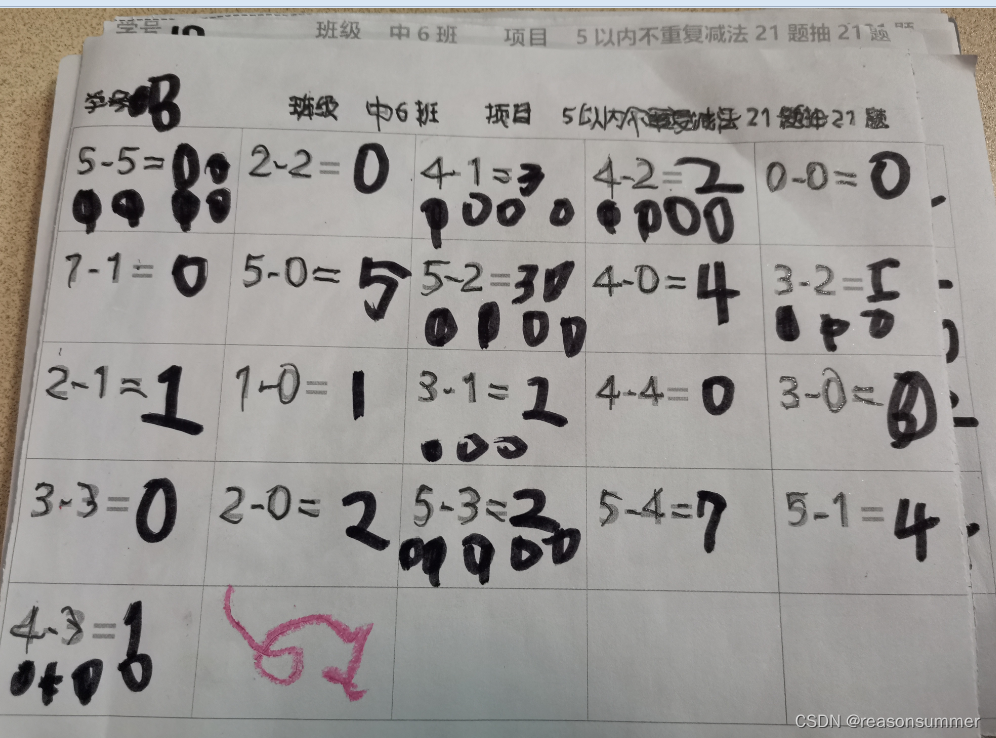 学号 班级 中6班 项目 5以内不重复减法21题抽21题
学号 8 班级 中6班 项目 5以内不重复减法21题抽21题
5-5=0 2-2=0 4-1=3 4-2=2 0-0=0
1-1=0 5-0=5 5-2=3 4-0=4 3-2=1
2-1=1 1-0=1 3-1=2 4-4=0 3-0=
3-3=0 2-0=2 5-3=2 5-4=7 5-1=4
4-3=1
CSDN @reasonsummer